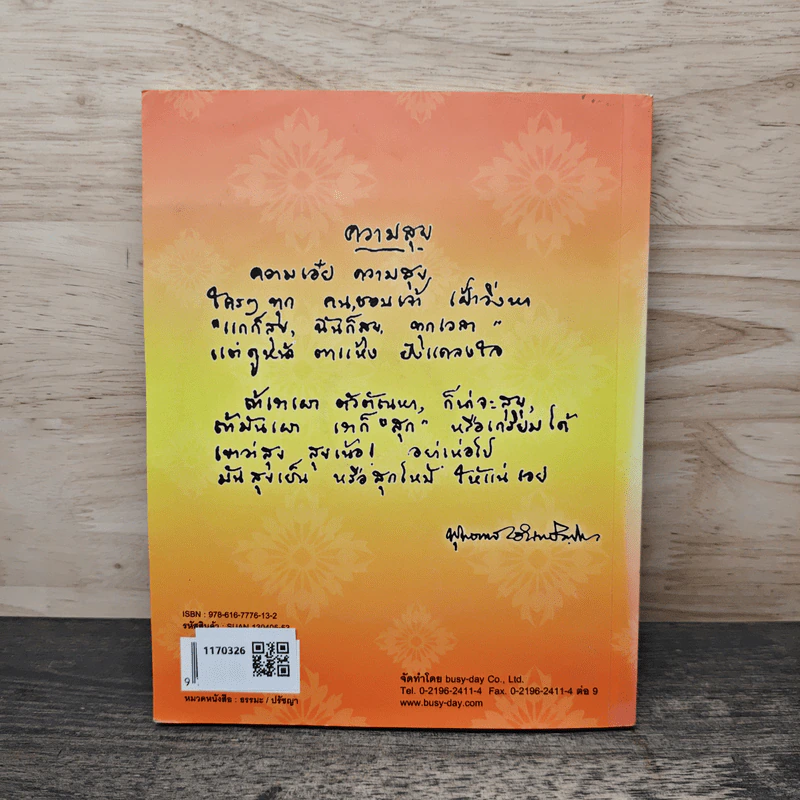 ความสุข
ความเอ๋ย ความสุข,
ใครๆ ทุก คน,ชอบเจ้า เฝ้าวิ่งหา
"แกก็สุข, ฉันก็สุข, ทุกเวลา"
แต่ดูหน้า ตาแห้ง ยังแคลงใจ
ถ้าเราเผา ตัวตัณหา, ก็น่าจะสุข,
ถ้ามันเผา เราก็ "สุก" หรือเกรียมได้
เขาว่าสุข สุขเน้อ! อย่าเห่อไป
มันสุขเย็น หรือสุกไหม้ ให้แน่เอย
พุทธทาส อินทปัญโญ
ISBN : 978-616-7776-13-2
รหัสสินค้า : SUAN 130406-53
1170326
9
หมวดหนังสือ : ธรรมะ / ปรัชญา
จัดทำโดย busy-day Co., Ltd.
Tel. 0-2196-2411-4 Fax. 0-2196-2411-4 ต่อ 9
www.busy-day.com